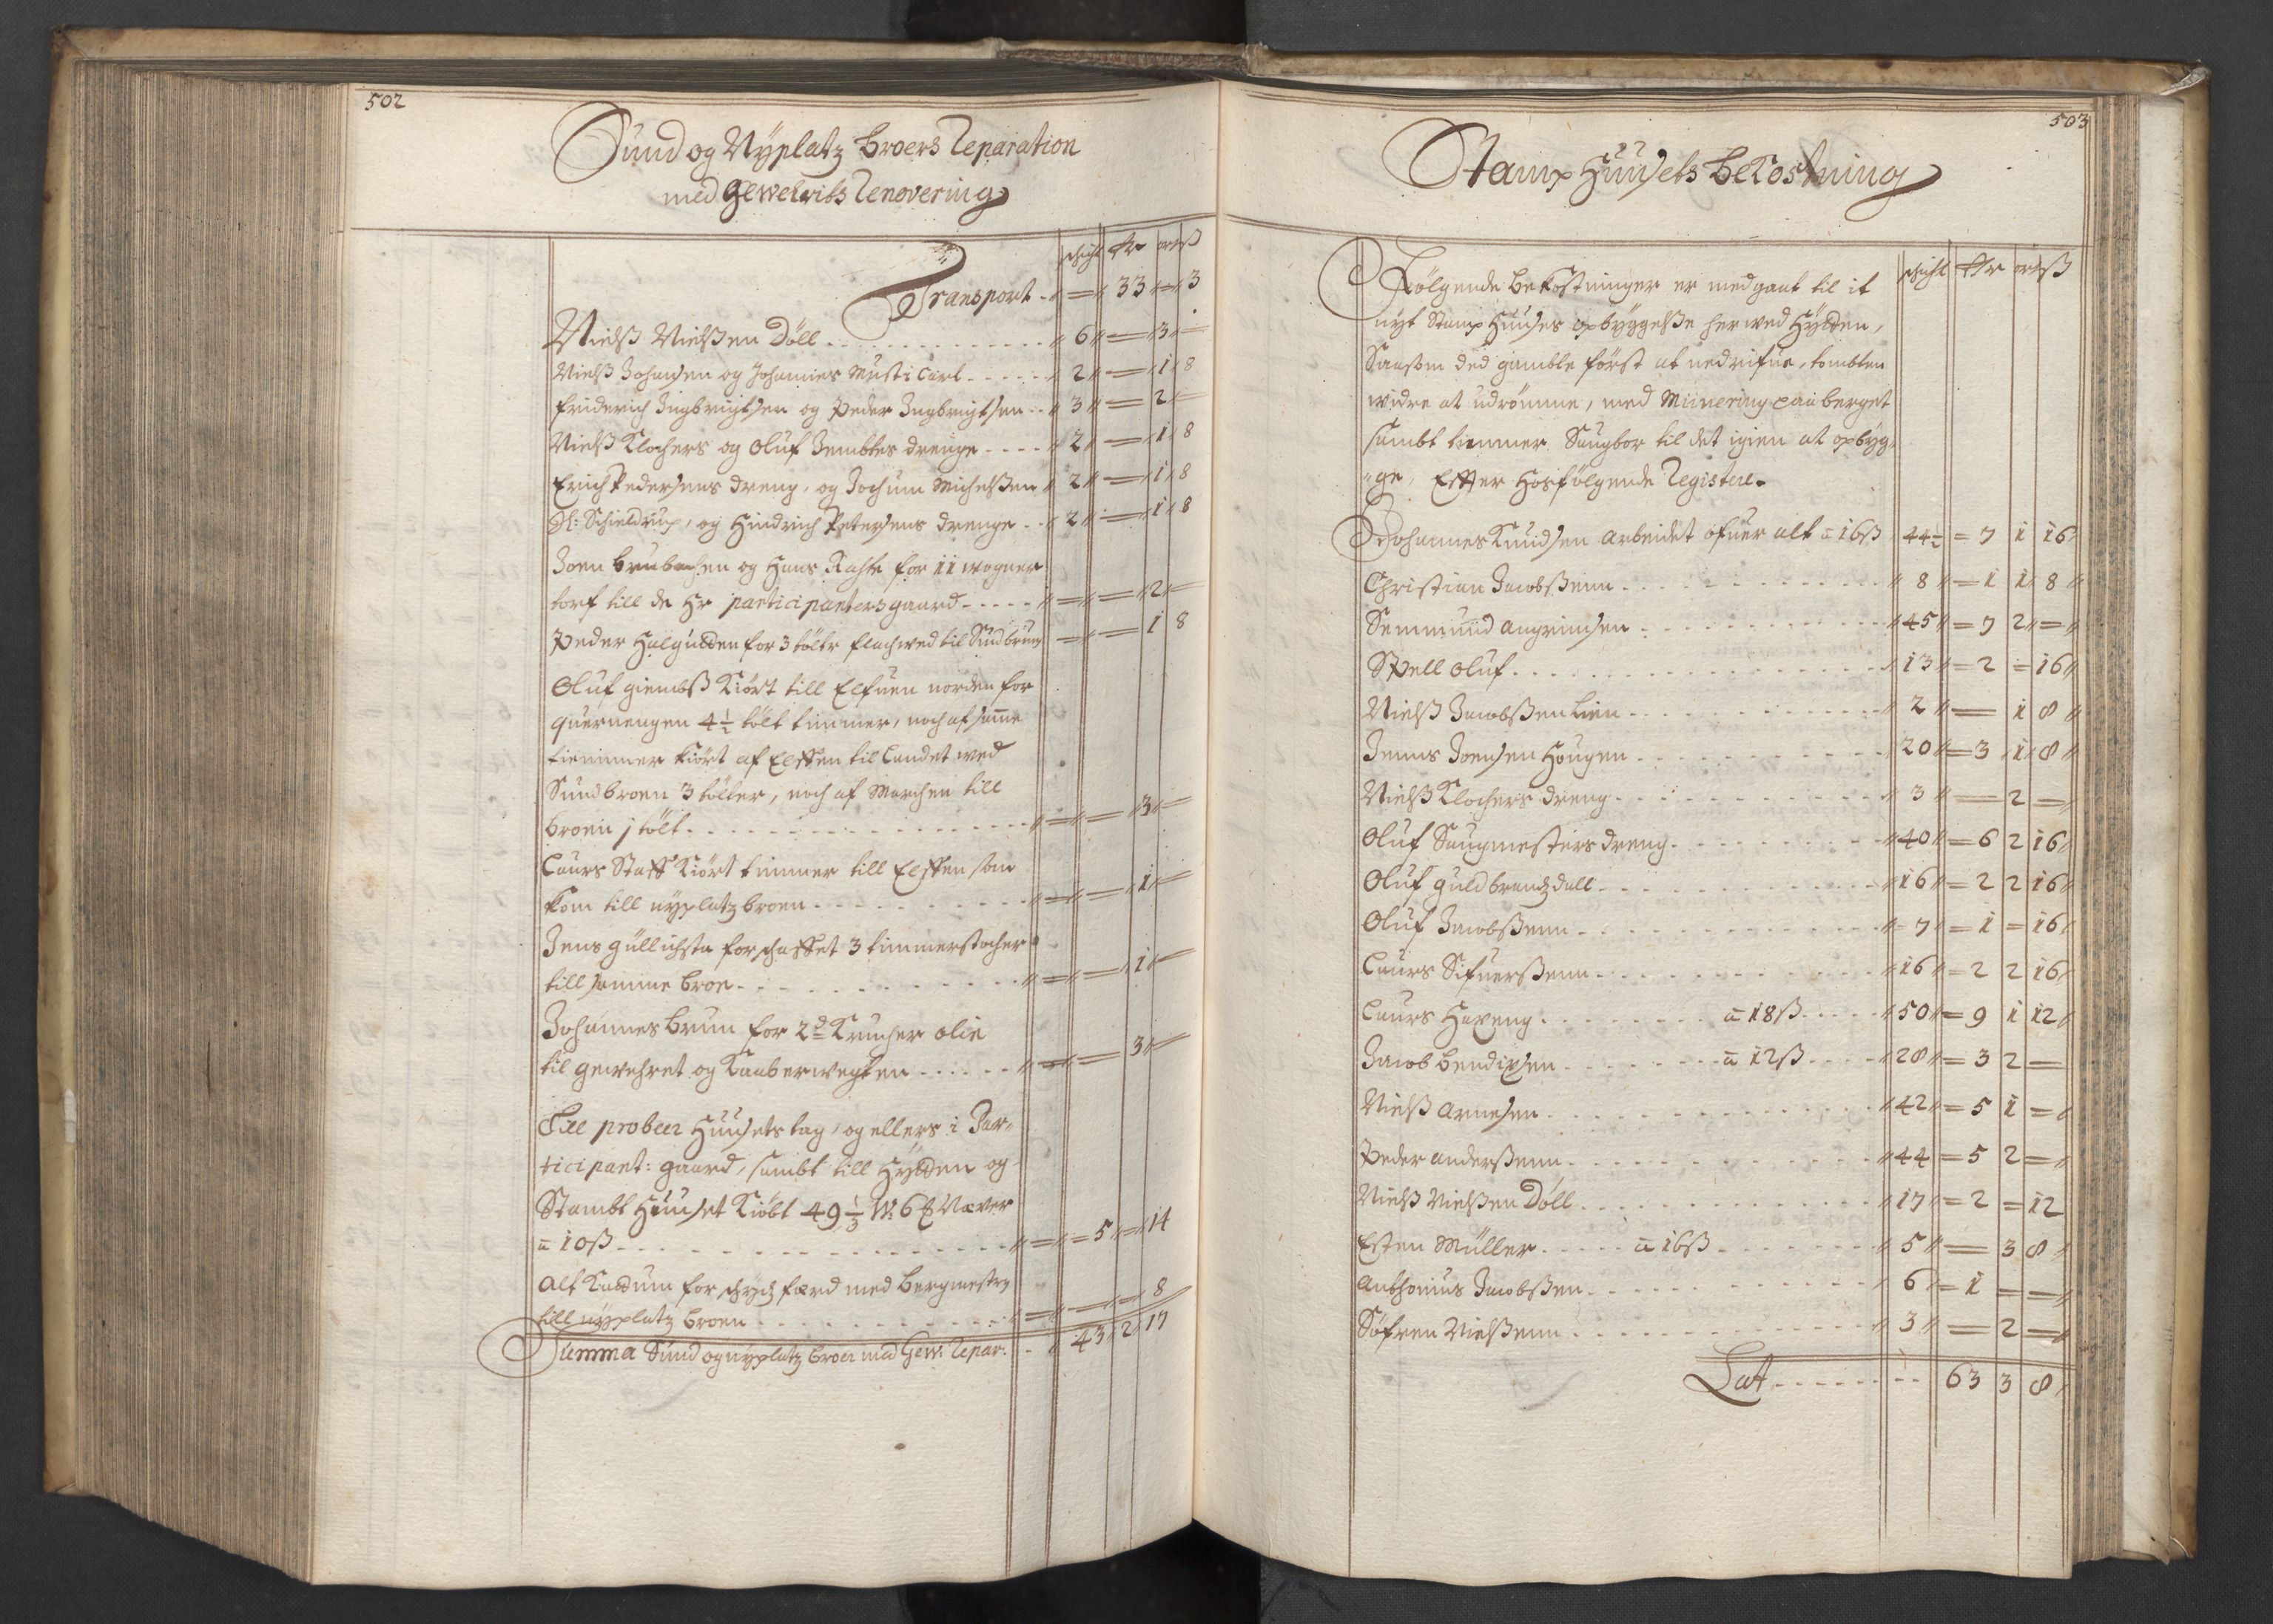 502
Sund og Nÿplatz Broers Reparation
med Gewelvits Renovering
schicht Rdr ort ß
Transport - " = " 33 " = " 3
Nielß Nielßen Döll " 6 " = 3 " =
Nielß Johansen og Johannes Must: Carl " 2 " = " 1 " 8
Friderich Ingbrigtsen og Peder Ingbrigtsen " 3 " = 2 " =
Nielß Klochers og Oluf Jembtes drenge " 2 " = " 1 " 8
Erich Pedersens dreng, og Jochum Michelßen " 2 " = " 1 " 8
H: Schieldrup, og Hindrich Petersens drenge " 2 " = " 1 " 8
Joen Brubachen og Hans Rasch for 11 wogner
torf till de Hr participanters gaard " = " = " 2 " =
Peder Halgudden for 3 tölter flachwed til Sundbroen = " = 1 8
Oluf giembß Kiört till Elfuen norden for
quernengen 4½ tölt timmer, noch af samme
timmer kiört af Elffen til Landet wed
Sundbroen 3 tölter, noch af Marchen till
broen j tölt " = " = " 3 " =
Laurs Staff Kiört timmer till Elffen som
kom till nÿplatz broen " = " = " 1 " =
Jens Güllichsta forschaffet 3 timmerstocher
till samme broe " = " = " 1 " =
Johannes Brun for 2d Krucher olie
til gewehret og Kaaberwegten " = " = 3 " =
Till probeer Huusets tag, og ellers i Par-
ticipant: gaard, sambt till Hÿtten og
Stambt Huuset Kiöbt 49⅓ W: 6 ℔ Næver
a 10ß " = " = 5 " = " 14
Alf Kaldum for schÿdsfærd med Bergmestr:
till nÿplatz broen " = " = " = 8
Summa Sund og nÿplatz broer med Gew: Repar: - " 43 " 2 " 17
503
Stamp Huusets Bekostning
schicht Rdr ort ß
Fölgende Bekostninger er medgaat til it
nÿt Stamp Huuses opbÿggelße her wed Hÿtten,
Saasom ded gamble först at nedrifue, tombten
widre at udrömme, med Miinering paa berget
sambt timmer Saugbor til det igien at opbÿg-
"ge, Efter Hosfölgende Register.
Johannes Knudsen arbeidet ofuer alt a 16ß 44½ = 7 1 16
Christian Jacobßenn " 8 " = 1 1 " 8 "
Semmund Angrimsen " 45 " = 7 2 " = "
Spell Oluf " 13 " = 2 = 16 "
Nielß Jacobßen Lien " 2 " = 1 8 "
Jenns Joensen Hougen " 20 " = 3 " 1 " 8 "
Nielß Klochers dreng " 3 " = 2 = "
Oluf Saugmesters dreng " 40 " = 6 2 16 "
Oluf Guldbrandz dall " 16 " = 2 2 16 "
Oluf Jacobßenn " 7 " = 1 = 16 "
Laurs Sifuerßenn " 16 " = 2 2 16 "
Laurs Haveng a 18ß " 50 " = 9 1 12 "
Jacob Bendixen a 12ß " 28 " = 3 2 =
Nielß Arnesen " 42 " = 5 1 = "
Peder Anderßenn " 44 = 5 2 = "
Nielß Nielßen Döll " 17 " = 2 = 12
Esten Müller a 16ß " 5 " = 3 8 "
Anthonius Jacobßen " 6 " = 1 = = "
Söfren Nielßenn " 3 " = 2 = "
Lat 63 3 8 "